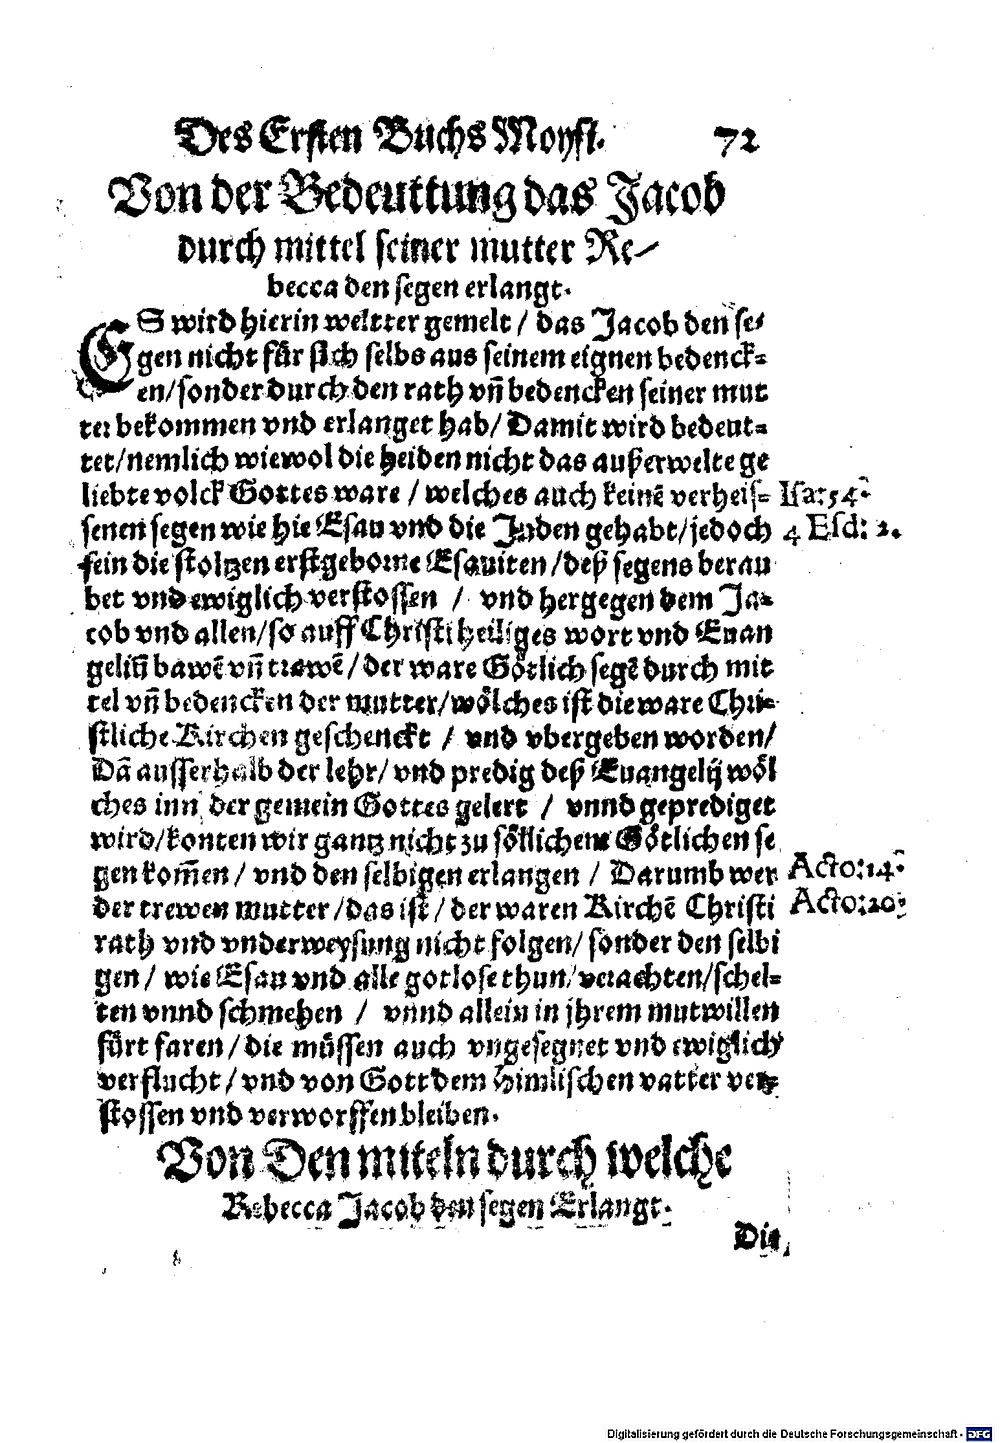 Des Ersten Buchs Moysi. 72
Von der Bedeuttung das Jacob
durch mittel seiner mutter Re-
becca den segen erlangt.
ES wird hierin weitter gemelt / das Jacob den se-
gen nicht für sich selbs aus seinem eignen bedenck=
en/sonder durch den rath vn̄ bedencken seiner mut
ter bekommen vnd erlanget hab/ Damit wird bedeut=
tet/nemlich wiewol die heiden nicht das außerwelte ge
liebte volck Gottes ware / welches auch keinē verheis=
Isa: 54.
senen segen wie hie Esau vnd die Juden gehabt/jedoch
4 Esd: 2.
sein die stoltzen erstgeborne Esauiten /deß segens berau
bet vnd ewiglich verstossen / vnd hergegen dem Ja=
cob vnd allen/so auff Christi heiliges wort vnd Euan
geliū bawē vn̄ trawē/der ware Götlich segē durch mit
tel vn̄ bedencken der mutter/wölches ist die ware Chri=
stliche Kirchen geschenckt / vnd vbergeben worden/
Dā ausserhalb der lehr/ vnd predig deß Euangelij wöl
ches inn der gemein Gottes gelert / vnnd geprediget
wird/konten wir gantz nicht zu söllichem Götlichen se
gen kom̄en / vnd den selbigen erlangen / Darumb wer
Acto: 14.
der trewen mutter /das ist / der waren Kirchē Christi
Acto: 20.
rath vnd vnderweysung nicht folgen/ sonder den selbi
gen / wie Esau vnd alle gotlose thun/verachten/schel=
ten vnnd schmehen / vnnd allein in jhrem mutwillen
fürt faren/die müssen auch vngesegnet vnd ewiglich
verflucht/vnd von Gott dem himlischen vatter ver=
stossen vnd verworffen bleiben.
Von Den miteln durch welche
Rebecca Jacob den segen Erlangt.
Die
Digitalisierung gefördert durch die Deutsche Forschungsgemeinschaft - DFG